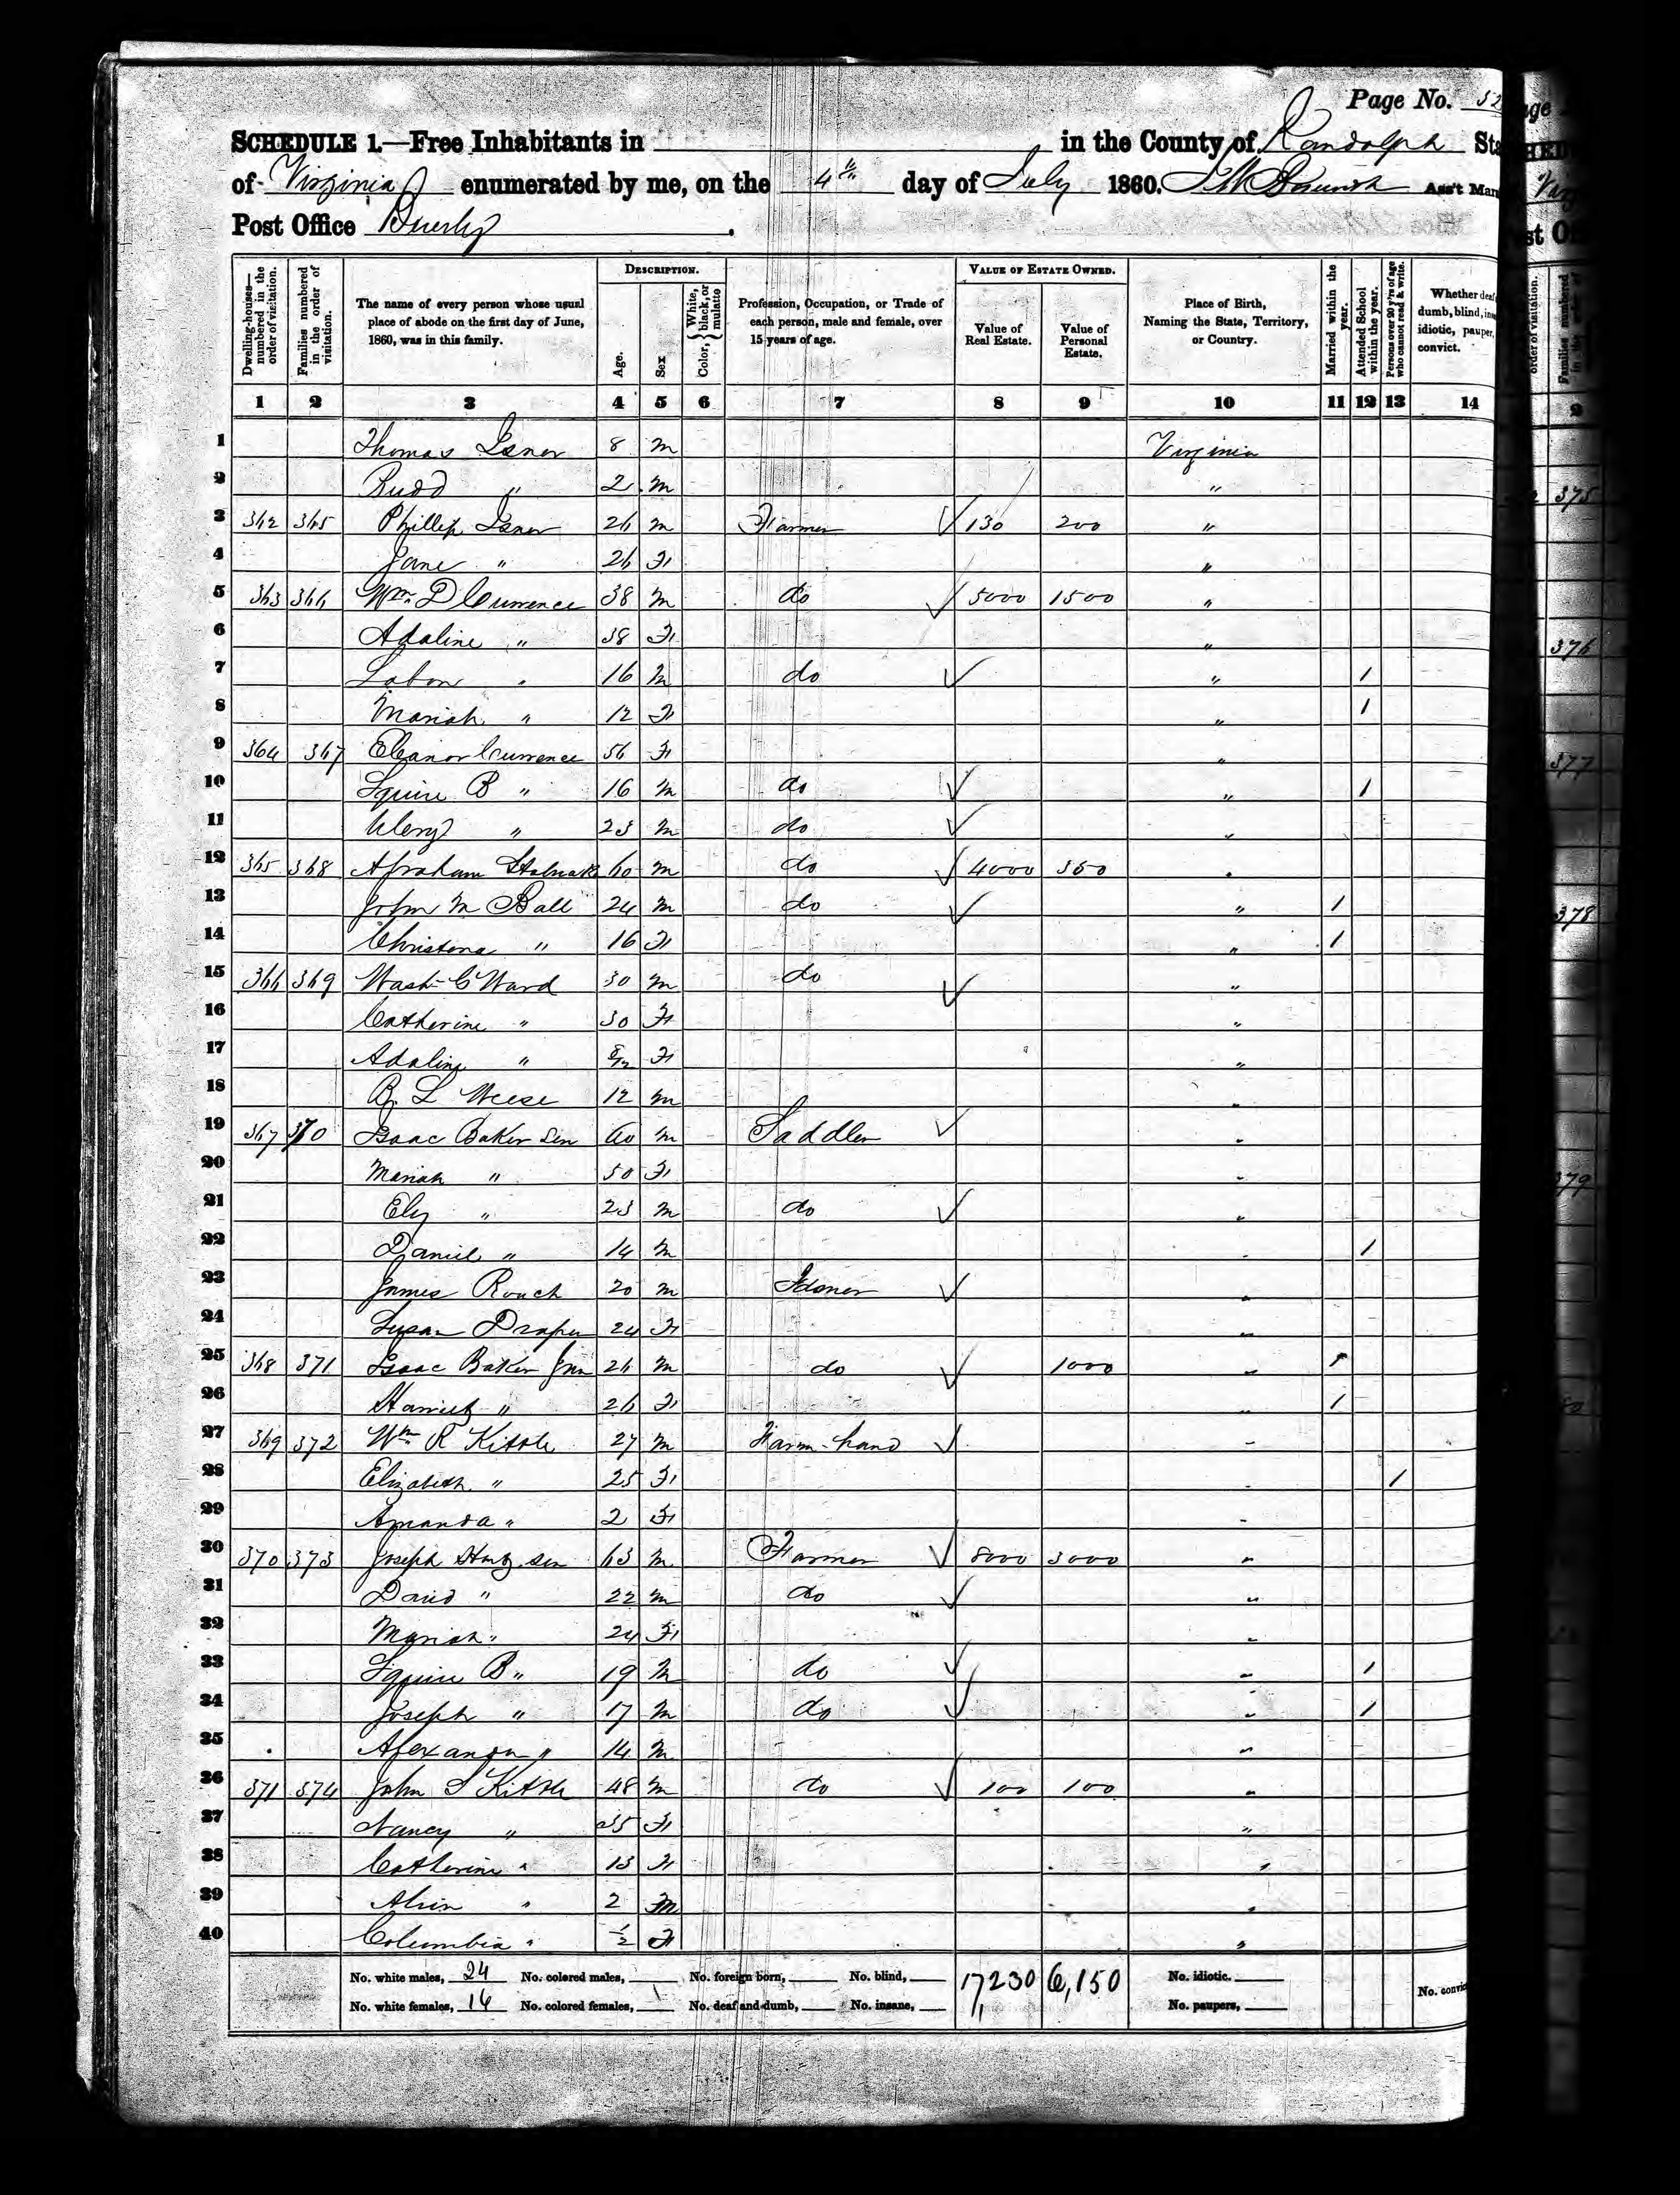 Page No. 52
SCHEDULE 1.—Free Inhabitants in in the County of Randolph Sta
of Virginia enumerated by me, on the 4th day of July 1860. Ass't Mar
Post Office Beverly .
Dwelling-houses—numbered in the order of visitation.
Families numbered in the order of visitation.
The name of every person whose usual place of abode on the first day of June, 1860, was in this family.
DESCRIPTION.
Age.
Sex
Color, { White, black, or mulatto
Profession, Occupation, or Trade of each person, male and female, over 15 years of age.
VALUE OF ESTATE OWNED.
Value of Real Estate.
Value of Personal Estate.
Place of Birth, Naming the State, Territory, or Country.
Married within the year.
Attended School within the year.
Persons over 20 y'rs of age who cannot read & write.
Whether deaf dumb, blind, ins idiotic, pauper, convict.
1 2 3 4 5 6 7 8 9 10 11 12 13 14
1 Thomas Isner 8 m Virginia
2 Budd " 2 m "
3 362 365 Phillip Isner 26 m Farmer 130 200 "
4 Jane " 26 F "
5 363 366 Wm D Currence 38 m do 5000 1500 "
6 Adaline " 38 F "
7 Labon " 16 m do " 1
8 Mariah " 12 F " 1
9 364 367 Eleanor Currence 56 F "
10 Squire B " 16 m do " 1
11 " 23 m do "
12 365 368 Abraham Stalnak 60 m do 4000 350 "
13 John M Ball 24 m do " 1
14 Christena " 16 F " 1
15 366 369 Wash C Ward 30 m do "
16 Catherine " 30 F "
17 Adaline " 8/12 F "
18 B L Weese 12 m "
19 367 370 Isaac Baker Sen 60 m Saddler "
20 Mariah " 50 F "
21 Ely " 23 m do "
22 Daniel " 14 m " 1
23 James Roach 20 m "
24 Susan Draper 24 F "
25 368 371 Isaac Baker Jnr 26 m do 1000 " 1
26 Harriet " 26 F " 1
27 369 372 Wm R Kittle 27 m Farm-hand "
28 Elizabeth " 25 F " 1
29 Amanda " 2 F "
30 370 373 Joseph Hart Sen 63 m Farmer 8000 3000 "
31 David " 22 m do "
32 Mariah " 24 F "
33 Squire B " 19 m do " 1
34 Joseph " 17 m do " 1
35 Alexander " 14 m "
36 371 374 John S Kittle 48 m do 100 100 "
37 Nancy " 35 F "
38 Catherine " 13 F "
39 Alvin " 2 m "
40 Columbia " 1/2 F "
No. white males, 24 No. colored males, No. foreign born, No. blind, 17,230 6,150 No. idiotic.
No. white females, 16 No. colored females, No. deaf and dumb, No. insane, No. paupers, No. convic
375
376
377
378
379